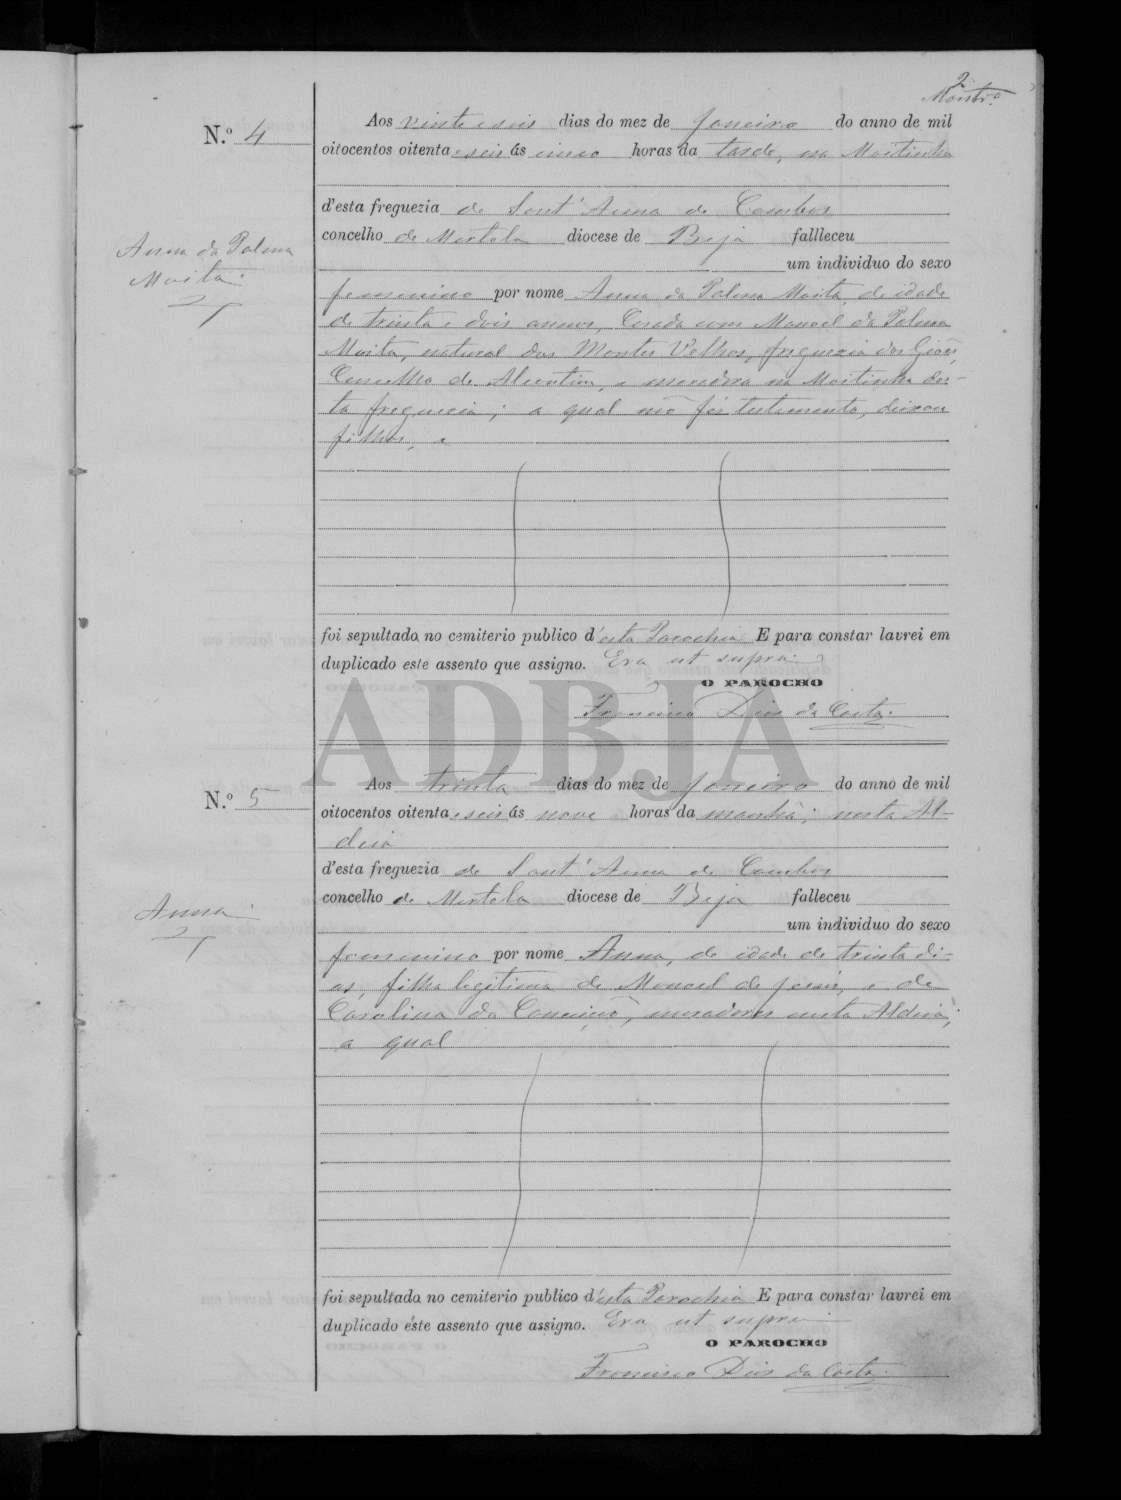 2
N.º 4
Aos vinte e seis dias do mez de Janeiro do anno de mil
oitocentos oitenta e seis ás cinco horas da tarde, na Moitinha
d'esta freguezia de Sant'Anna de Cambas
concelho de Mertola diocese de Beja fallleceu
um individuo do sexo
Anna da Palma
Moita
femenino por nome Anna da Palma Moita, de idade
de trinta e dois annos, Casada com Manoel da Palma
Moita, natural dos Montes Velhos, freguezia dos Giões,
Concelho de Alcoutim, e moradora na Moitinha des-
ta freguezia; a qual não fez testamento, deixou
filhos, e
foi sepultada no cemiterio publico d'esta Parochia E para constar lavrei em
duplicado este assento que assigno. Era ut supra
O PAROCHO
Francisco Dias da Costa.
ADBJA
N.º 5
Aos trinta dias do mez de Janeiro do anno de mil
oitocentos oitenta e seis ás nove horas da manhã; nesta Al-
deia
d'esta freguezia de Sant'Anna de Cambas
concelho de Mertola diocese de Beja falleceu
um individuo do sexo
Anna
femenino por nome Anna, de idade de trinta di-
as, filha legitima de Manoel de Jesus, e de
Carolina da Conceição, moradores nesta Aldeia;
a qual
foi sepultada no cemiterio publico d'esta Parochia E para constar lavrei em
duplicado este assento que assigno. Era ut supra
O PAROCHO
Francisco Dias da Costa.